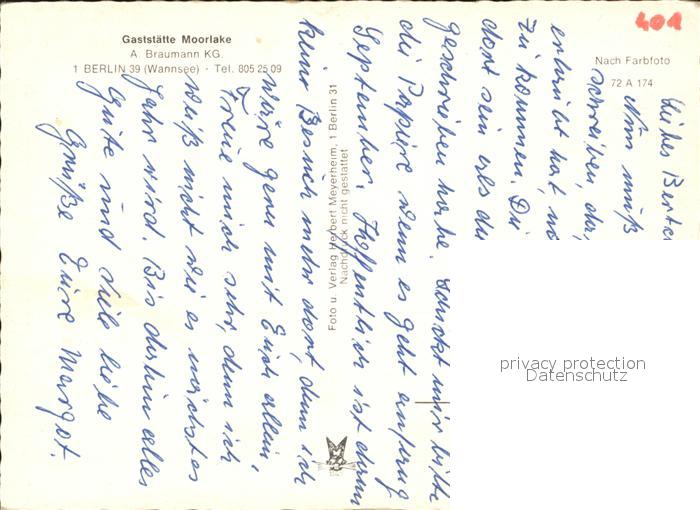 401
Gaststätte Moorlake
A. Braumann KG.
1 BERLIN 39 (Wannsee) · Tel. 805 25 09
Nach Farbfoto
72 A 174
Foto u. Verlag Herbert Meyerheim, 1 Berlin 31
Nachdruck nicht gestattet
Nun muß
schreiben, das
erlaubt hat,
zu kommen. Die
dort sein als du
geschrieben habe. Schickt mir bitte
die Papiere wenn es geht anfang
September. Hoffentlich ist dann
kein Besuch mehr dort, denn ich
wäre gern mit Euch allein.
Freue mich sehr, denn ich
weiß nicht wie es nächstes
Jahr wird. Bis dahin alles
Gute und viele liebe
Grüße Eure Margot.
privacy protection
Datenschutz